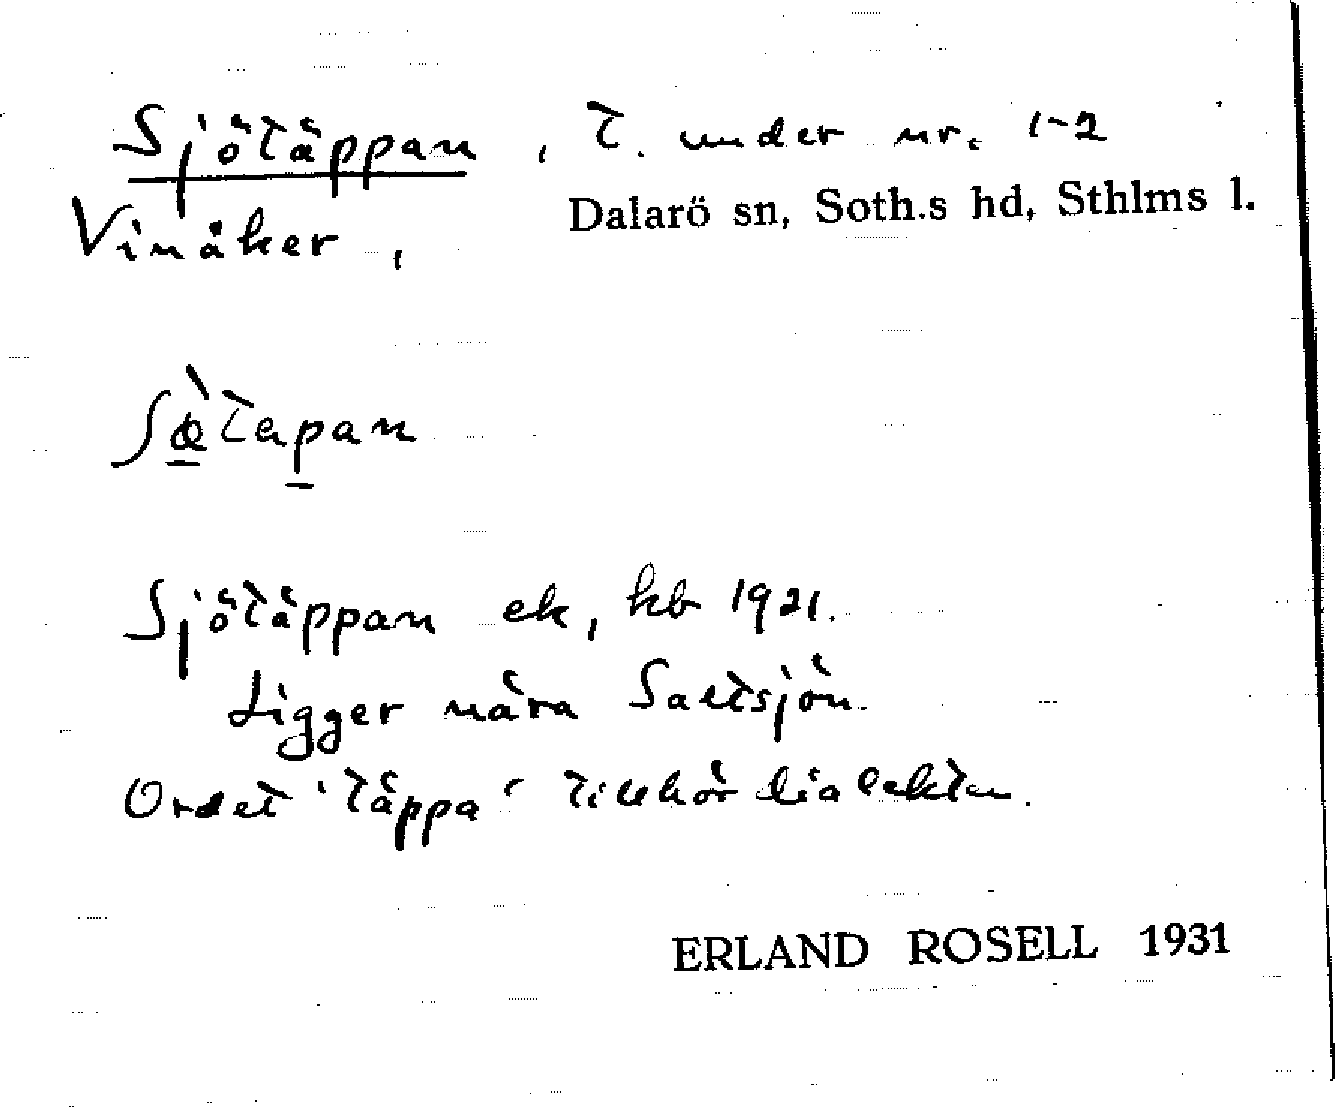 Sjötäppan, t. under nr. 1-2
Dalarö sn, Soth.s hd, Sthlms l.
Vinåker,
Sjötäppan ek, kb 1921.
Ligger nära Saltsjön.
Ordet 'täppa' tillhör dialekten.
ERLAND ROSELL 1931